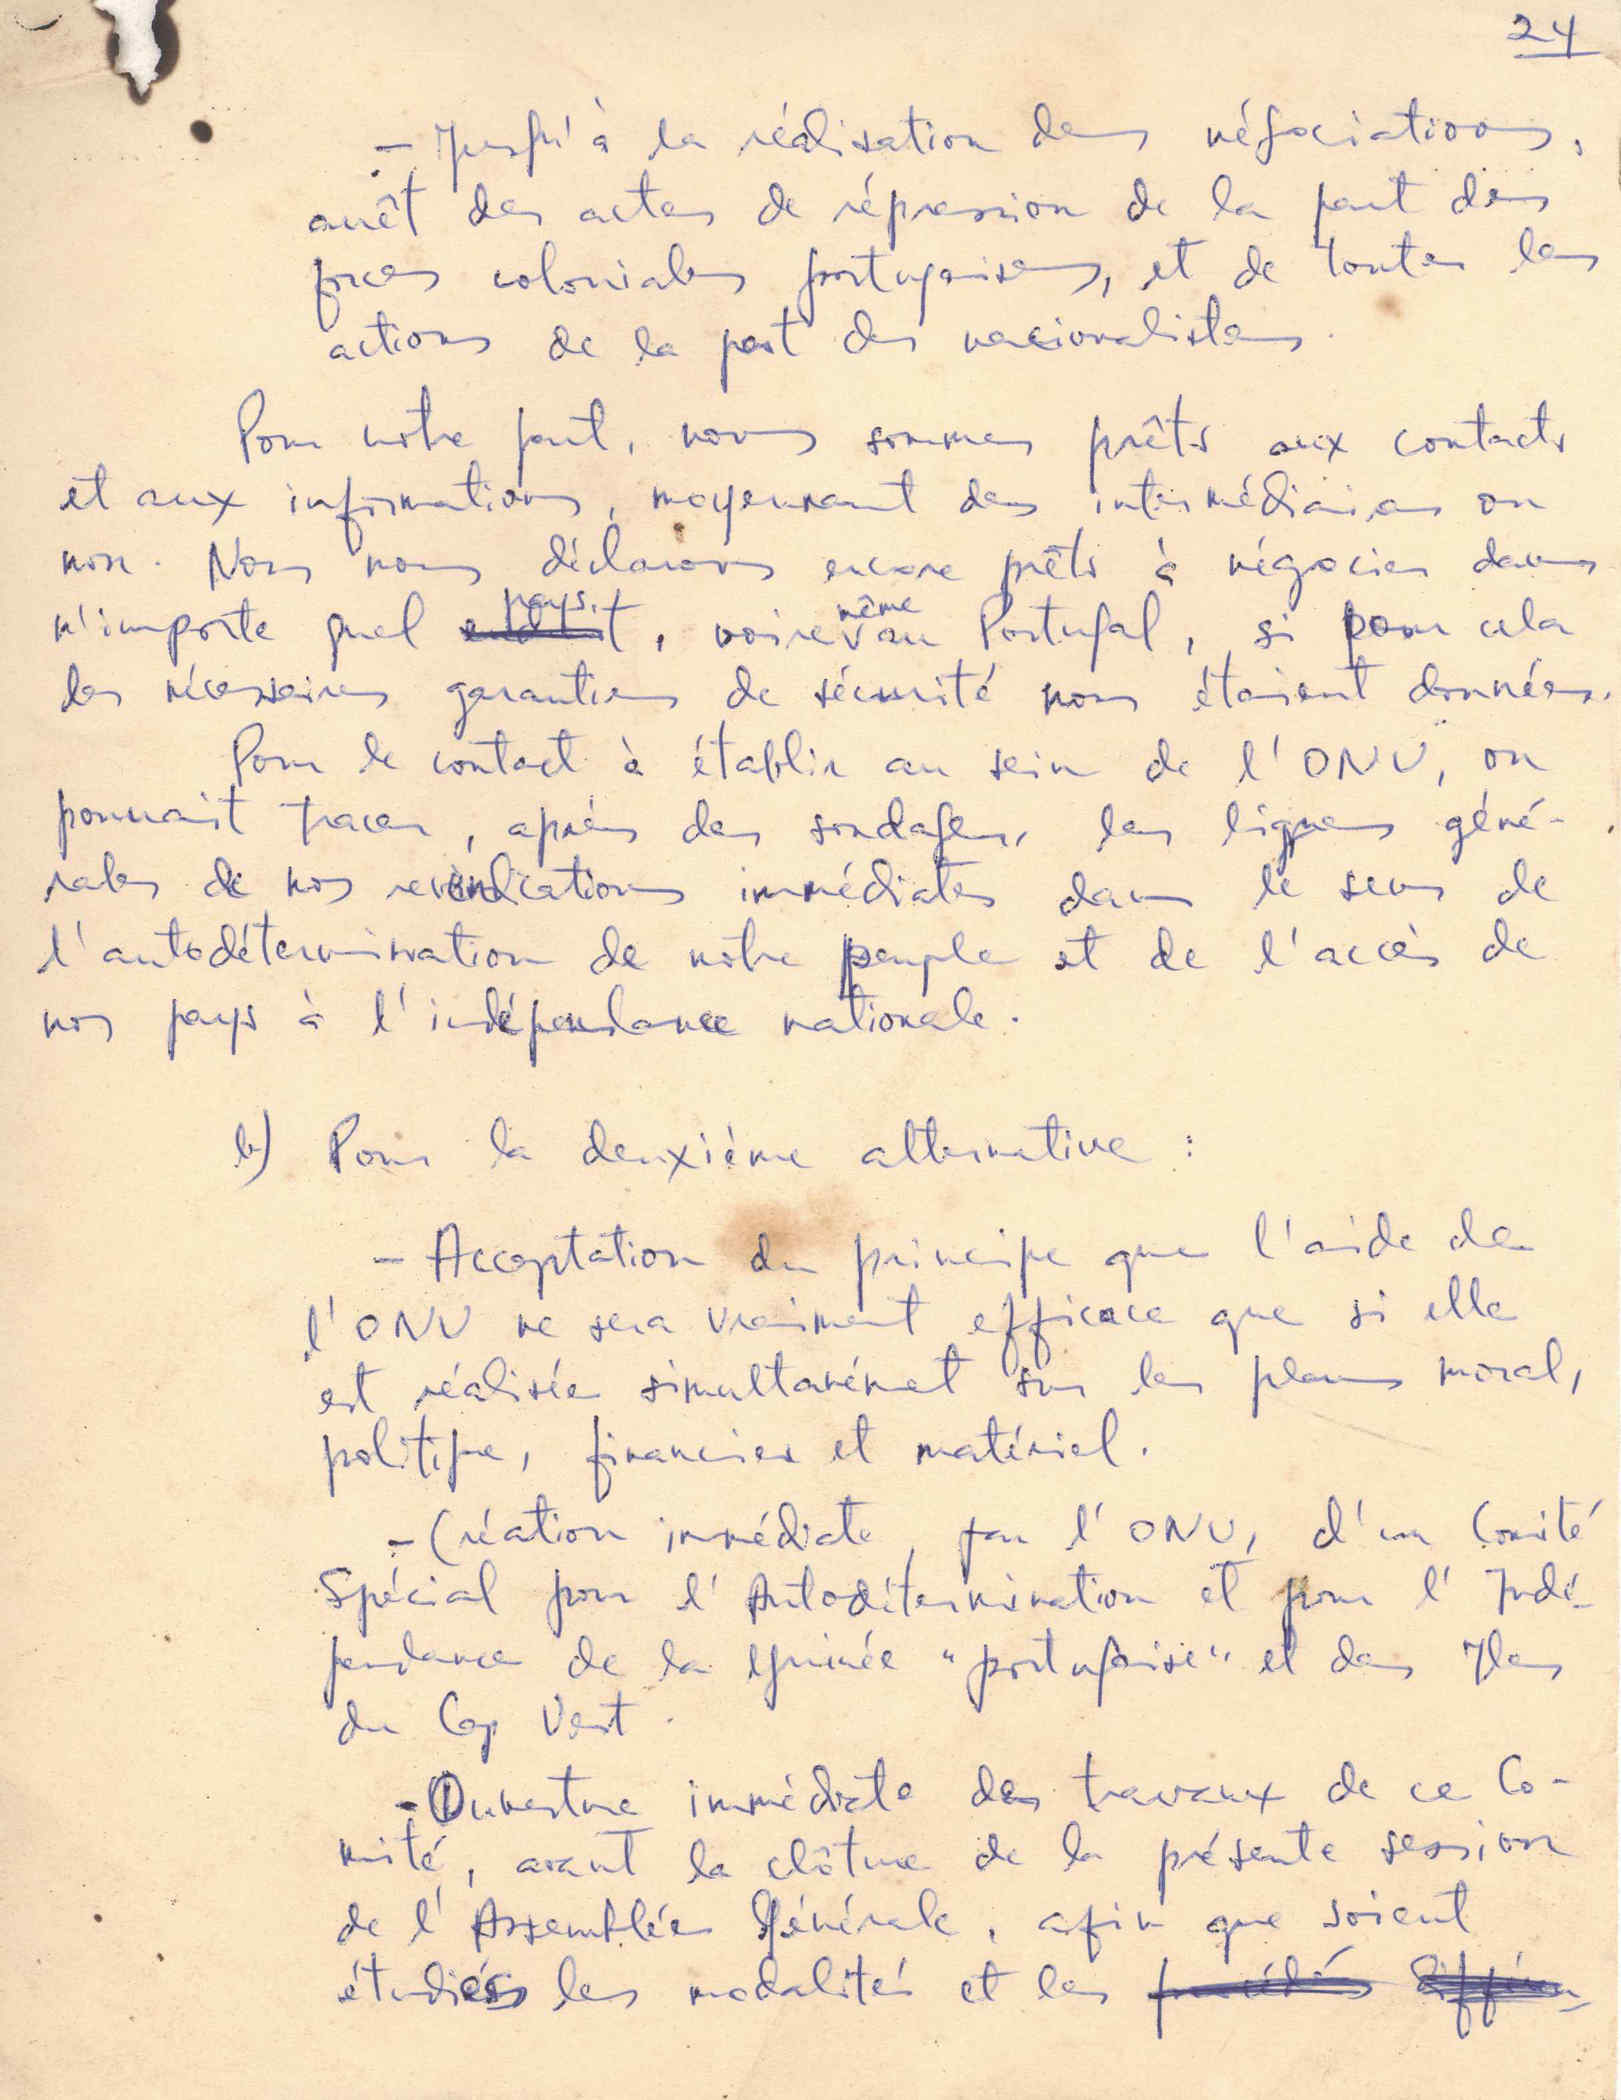 24
- Jusqu'à la réalisation des négociations,
arrêt des actes de répression de la part des
forces coloniales portugaises, et de toutes les
actions de la part des nacionalistes.
Pour notre part, nous sommes prêts aux contacts
et aux informations, moyennant des intermédiaires ou
non. Nous nous déclarons encore prêts à négocier dans
n'importe quel endroit pays, voire même au Portugal, si pour cela
les nécessaires garanties de sécurité nous étaient données.
Pour le contact à établir au sein de l'ONU, on
pourrait tracer, après des sondages, les lignes géné-
rales de nos revendications immédiates dans le sens de
l'autodétermination de notre peuple et de l'accès de
nos pays à l'indépendance nationale.
b) Pour la deuxième alternative :
- Acceptation du principe que l'aide de
l'ONU ne sera vraiment efficace que si elle
est réalisée simultanémet sur les plans moral,
politique, financier et matériel.
- Création immédiate, par l'ONU, d'un Comité
Spécial pour l'Autodétermination et pour l'Indé-
pendance de la Guinée "portugaise" et des Iles
du Cap Vert.
- Ouverture immédiate des travaux de ce Co-
mité, avant la clôture de la présente session
de l'Assemblée Générale, afin que soient
étudiés les modalités et les procédés